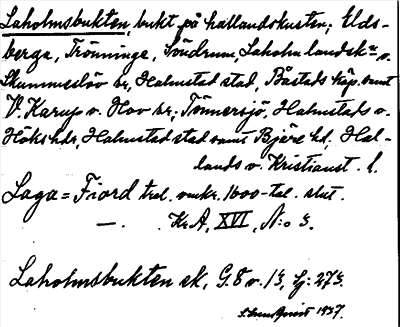 Laholmsbukten, bukt på hallandskusten; Elds-
berga, Trönninge, Söndrum, Laholm landsk: o.
Skummeslöv sr, Halmstad stad, Båstads köp. samt
V. Karup o. Hov sr; Tönnersjö, Halmstads o.
Höks hdr, Halmstad stad samt Bjäre hd. Hal-
lands o. Kristianst. l.
Laga = Fiord tral. omkr. 1600-tal. slut.
— . KrA, XVI, N:o 3.
Laholmsbukten ek, G. 8 v. 13, bj: 273.
1937.